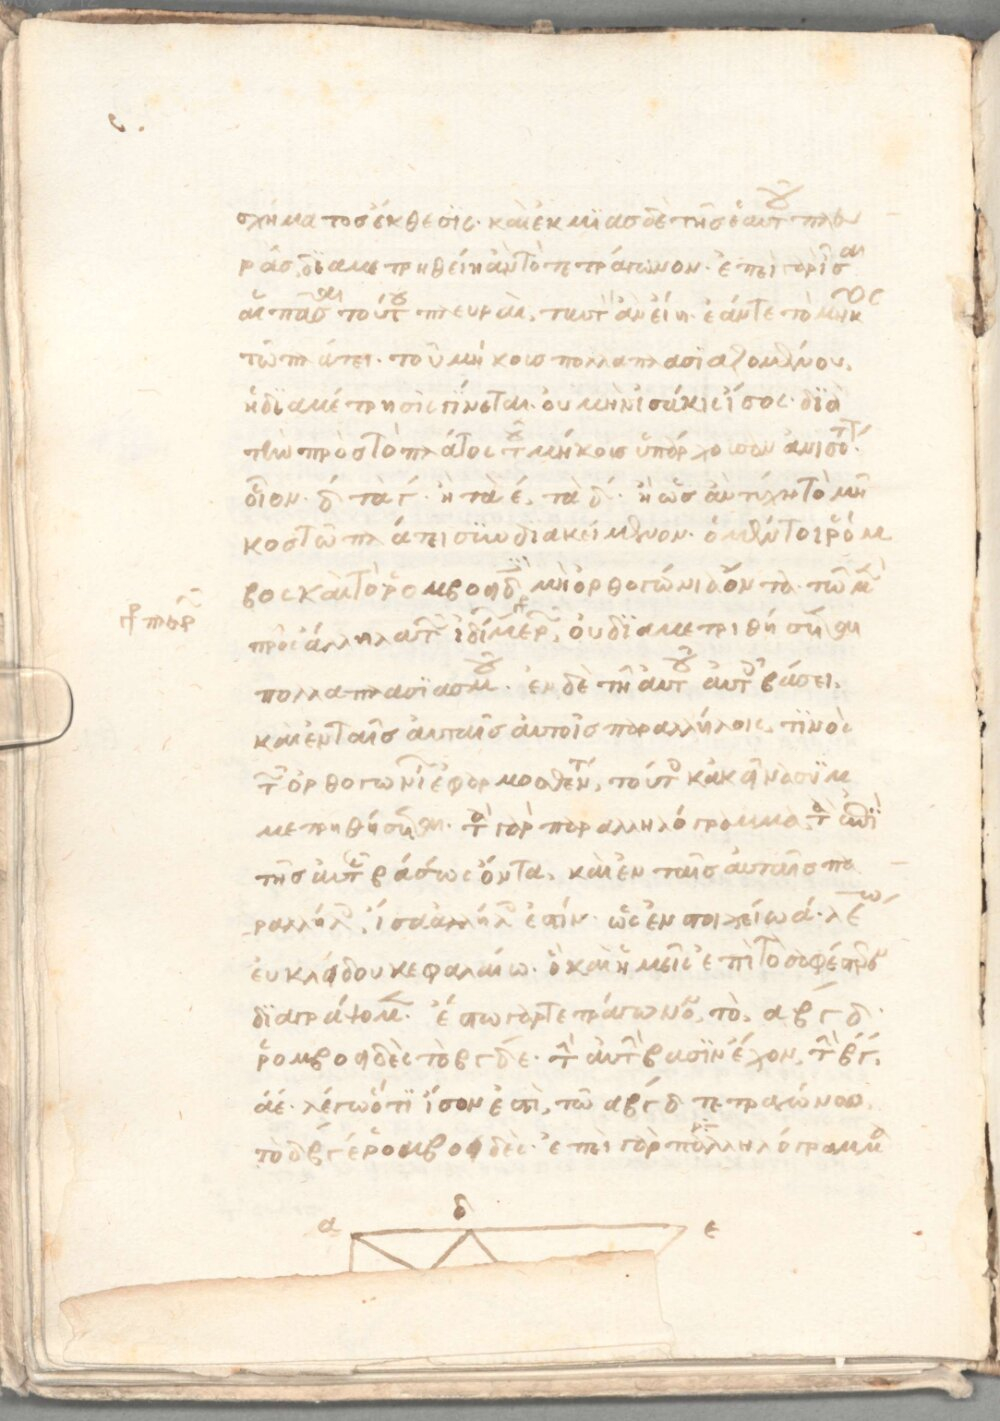 σχήματος ἔκθεσις· καὶ ἐκ μϊᾶς δὲ τῆς ἑαυτοῦ πλευ
ρᾶς, διαμετρηθείη ἂν τὸ τετράγωνον· ἐπεὶ γὰρ ἶσαι
αἱ πᾶσαι τούτου πλευραὶ, ταυτὸ ἂν εἴη· ἐάν τε τὸ μῆκος
τῶ πλάτει· τοῦ μήκους πολλαπλασϊαζομένου,
ἡ διαμέτρησις γίνεται· οὐ μὴν ἰσάκις ἴσος· δϊὰ
τὴν πρὸς τὸ πλάτος τοῦ μήκους ὑπάρχουσαν ἀνισότητα·
οἷον· δ τὰ γ· ἢ τὰ ε, τὰ δ· ἢ ὡς ἂν τύχη τὸ μῆ
κος τῶ πλάτει συνδιακείμενον· ὁ μέντοι ῥόμ
βος καὶ τὸ ῥομβοειδὲς μὴ ὀρθογώνια ὄντα· τῶ μὲν
πρὸς ἄλληλα αὐτῶν οὐ διαμετρηθήσεται
πολλαπλασϊασμοῦ· ἐν δὲ τῆ αὐτοῦ αὐτῶν βάσει,
καὶ ἐν ταῖς αὐταῖς αὐτοῖς παραλλήλοις, τϊνὸς
τῶν ὀρθογωνίων ἐφαρμοσθέντος, τούτω κἀκεῖνα συμ
μετρηθήσεται· τὰ γὰρ παραλληλόγραμμα, τὰ ἐπὶ
τῆς αὐτῆς βάσεως ὄντα, καὶ ἐν ταῖς αὐταῖς πα
ραλλήλοις, ἴσα ἀλλήλοις ἐστίν· ὡς ἐν στοιχείω ά· λέ
εὐκλείδου κεφαλαίω· ὃ καὶ ἡμεῖς ἐπὶ τὸ σαφέστερον
διαγράψομεν· ἔστω γὰρ τετράγωνον, τὸ, α β γ δ·
ῥομβοειδὲς τὸ β γ δ ε· τὴν αὐτὴν βάσϊν ἔχον, τὴν β γ,
α ε· λέγω ὅτι ἴσον ἐστὶ, τῶ α β γ δ τετραγώνω,
τὸ δ β γ ε ῥομβοειδὲς· ἐπεὶ γὰρ παραλληλόγραμμον
α
δ
ε